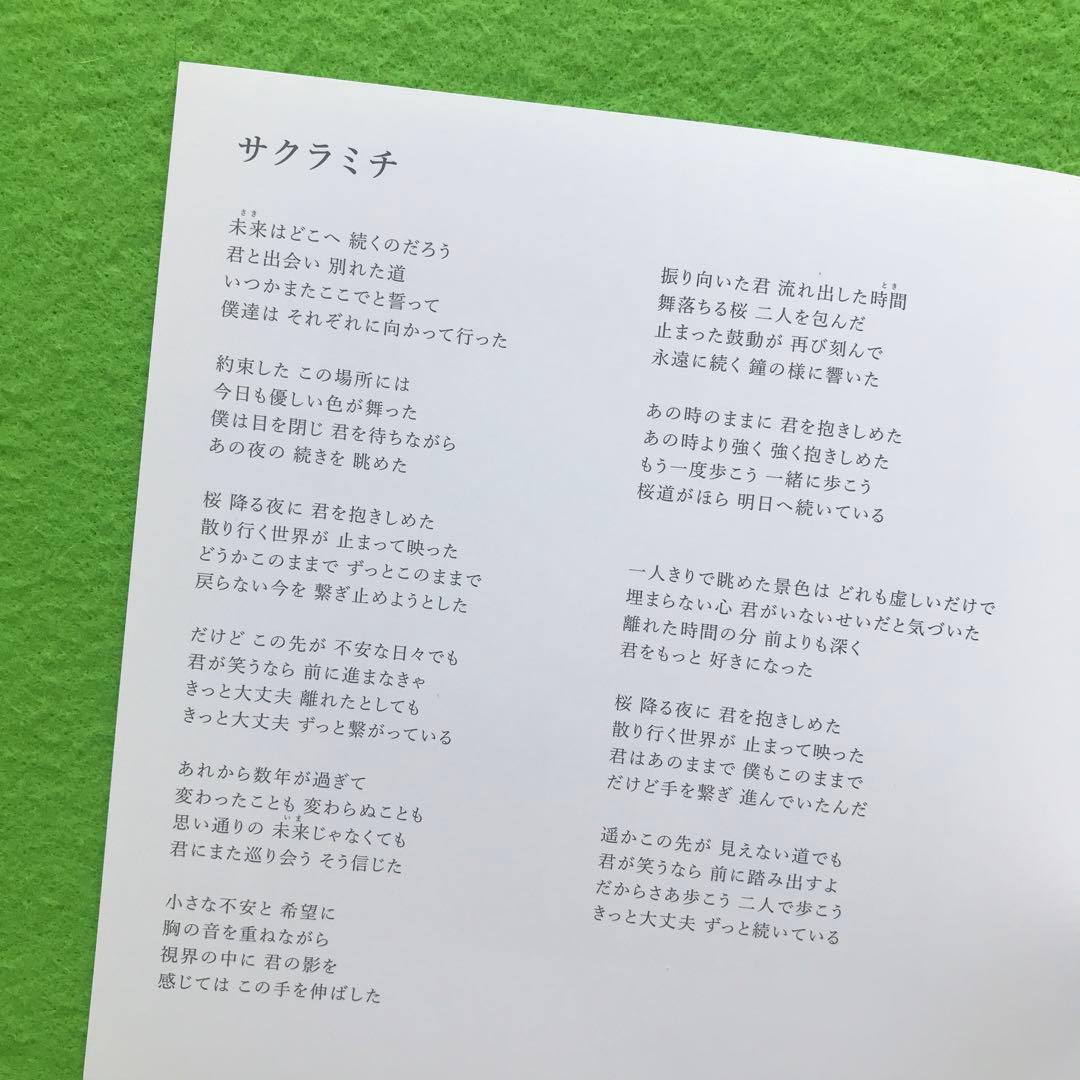 サクラミチ
未来はどこへ 続くのだろう
君と出会い 別れた道
いつかまたここでと誓って
僕達は それぞれに向かって行った
約束した この場所には
今日も優しい色が舞った
僕は目を閉じ 君を待ちながら
あの夜の 続きを 眺めた
桜 降る夜に 君を抱きしめた
散り行く世界が 止まって映った
どうかこのままで ずっとこのままで
戻らない今を 繋ぎ止めようとした
だけど この先が 不安な日々でも
君が笑うなら 前に進まなきゃ
きっと大丈夫 離れたとしても
きっと大丈夫 ずっと繋がっている
あれから数年が過ぎて
変わったことも 変わらぬことも
思い通りの 未来じゃなくても
君にまた巡り会う そう信じた
小さな不安と 希望に
胸の音を重ねながら
視界の中に 君の影を
感じては この手を伸ばした
振り向いた君 流れ出した時間
舞落ちる桜 二人を包んだ
止まった鼓動が 再び刻んで
永遠に続く 鐘の様に響いた
あの時のままに 君を抱きしめた
あの時より強く 強く抱きしめた
もう一度歩こう 一緒に歩こう
桜道がほら 明日へ続いている
一人きりで眺めた景色は どれも虚しいだけで
埋まらない心 君がいないせいだと気づいた
離れた時間の分 前よりも深く
君をもっと 好きになった
桜 降る夜に 君を抱きしめた
散り行く世界が 止まって映った
君はあのままで 僕もこのままで
だけど手を繋ぎ 進んでいたんだ
遥かこの先が 見えない道でも
君が笑うなら 前に踏み出すよ
だからさあ歩こう 二人で歩こう
きっと大丈夫 ずっと続いている